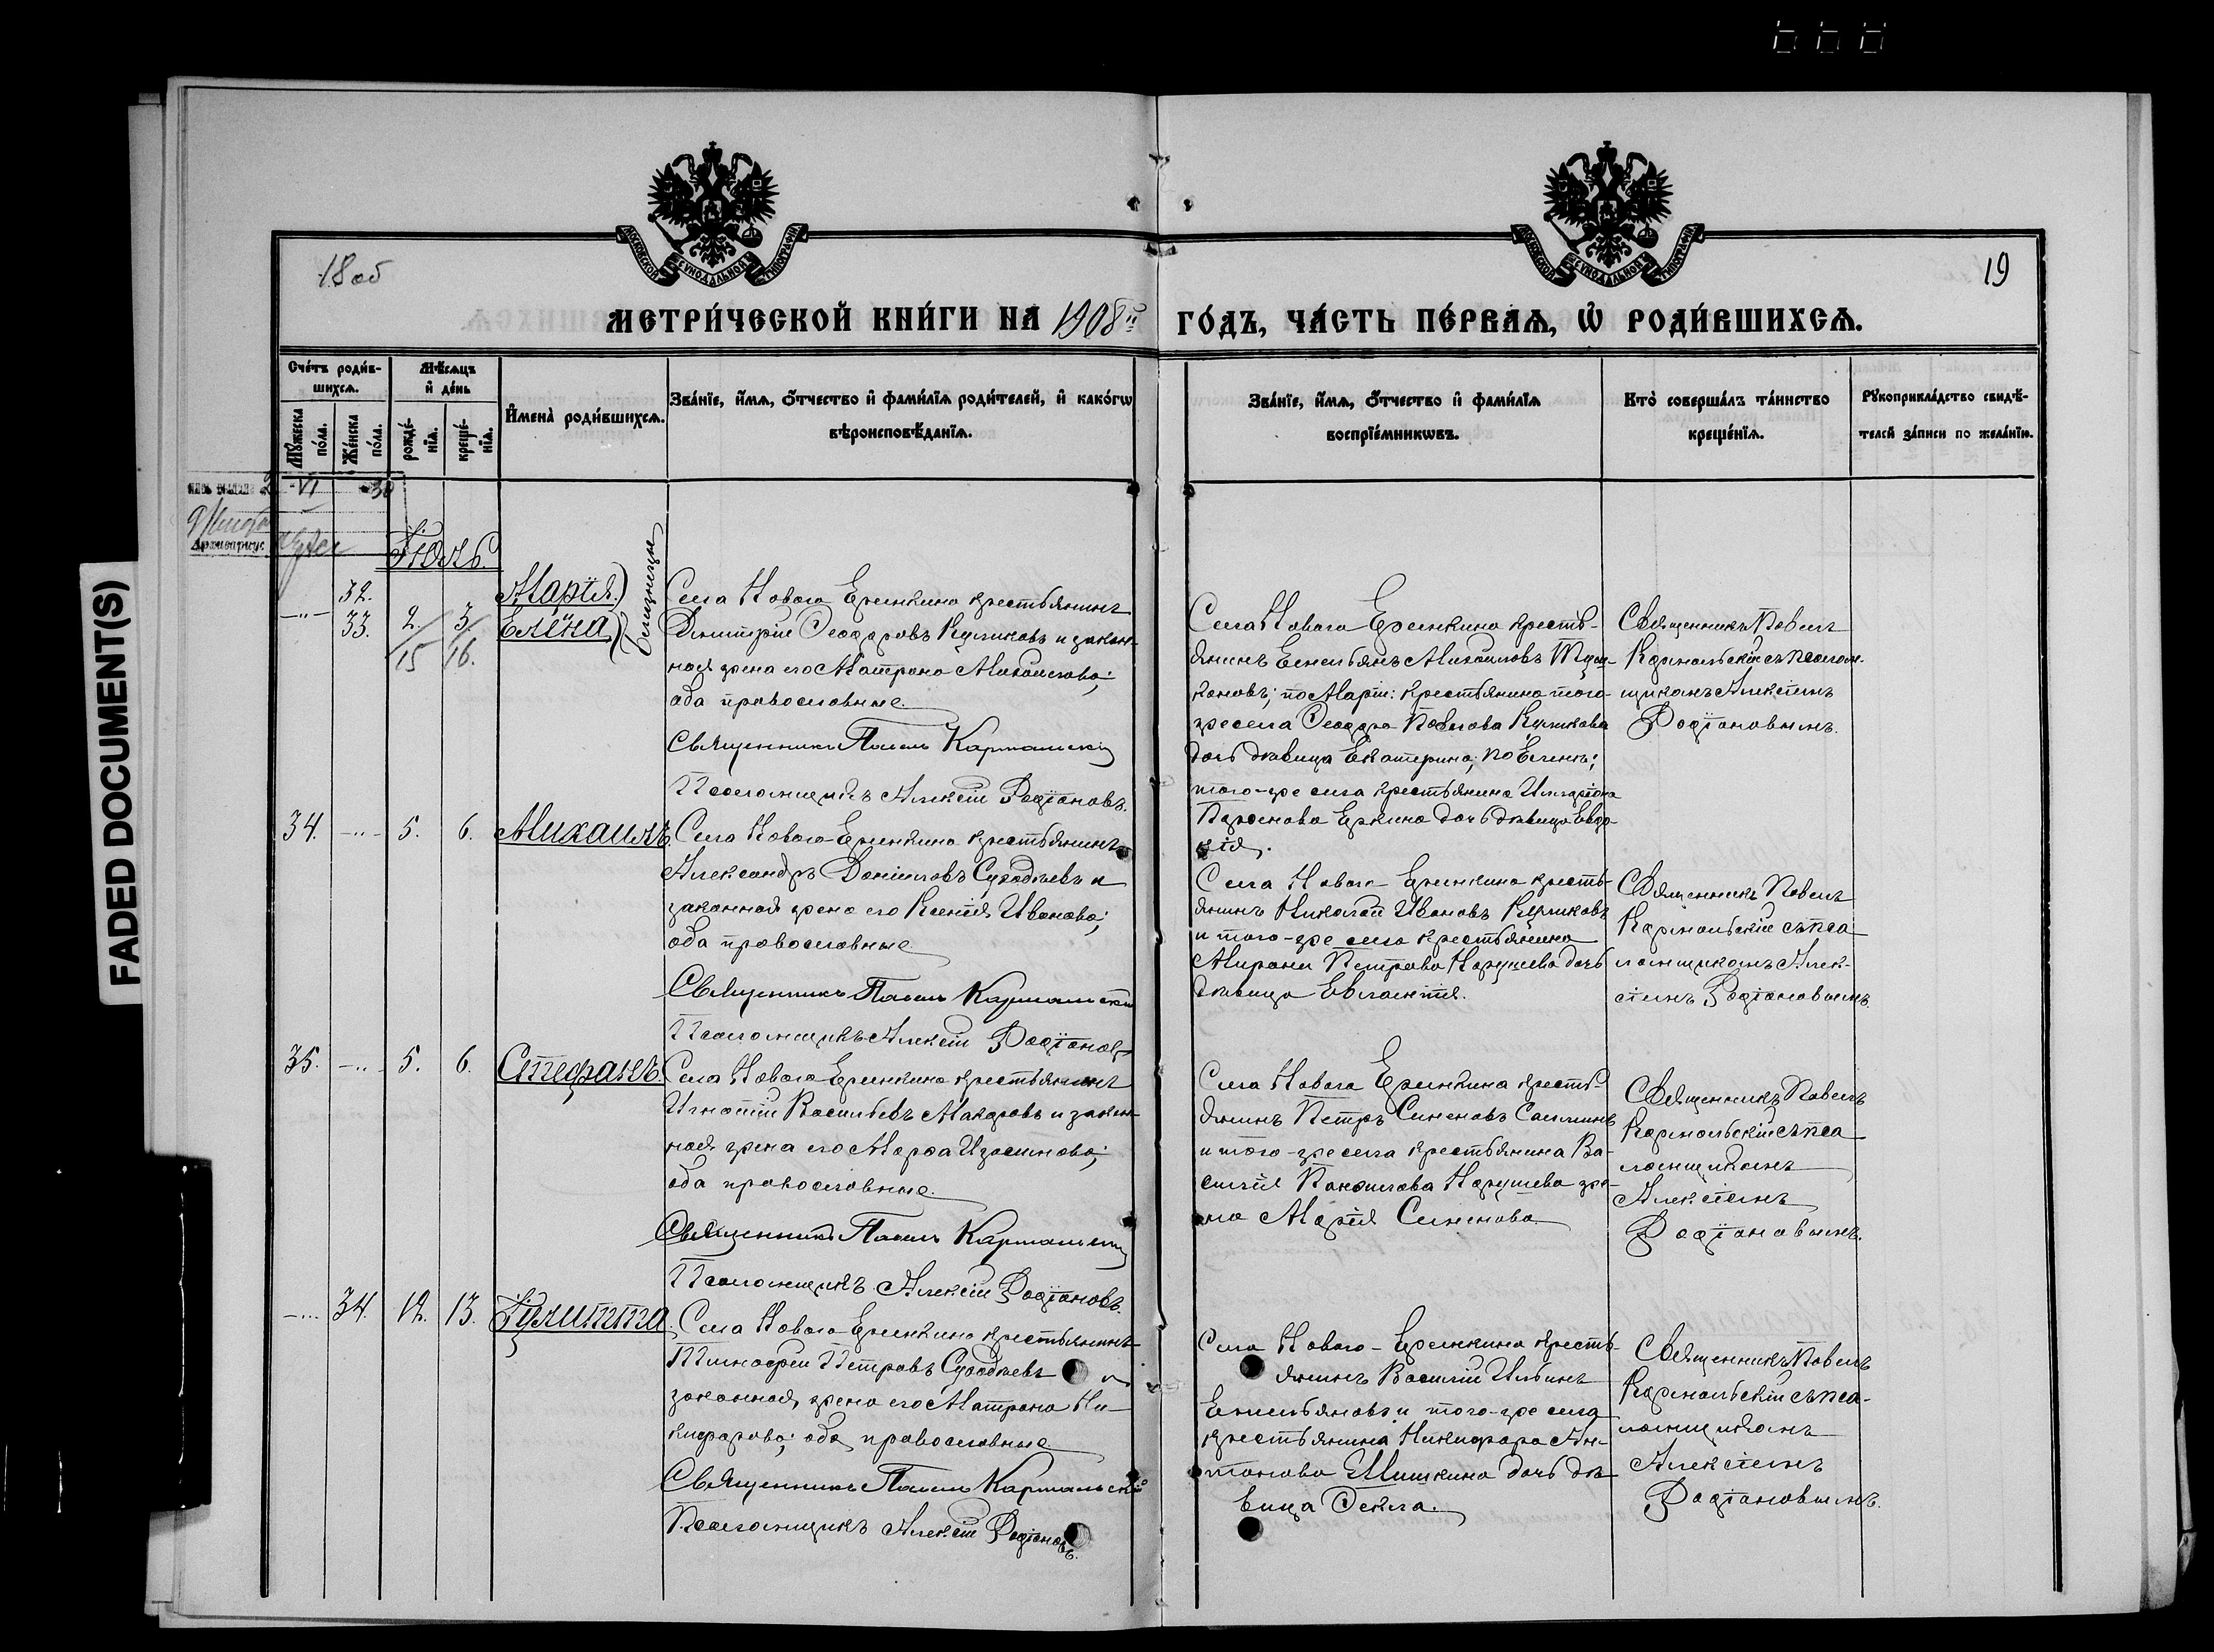 18 об
19
МОСКОВСКОЙ СѴНОДАЛЬНОЙ ТИПОГРАФІИ
МОСКОВСКОЙ СѴНОДАЛЬНОЙ ТИПОГРАФІИ
МЕТРИ́ЧЕСКОЙ КНИ́ГИ НА 1908й ГО́ДЪ, ЧА́СТЬ ПЕ́РВАѦ, Ѡ РОДИ́ВШИХСѦ.
Сче́тъ роди́в-
шихсѧ.
Мѣ́сѧцъ
и҆ де́нь
Мꙋ́жеска
по́ла.
Же́нска
по́ла.
рожде́-
нїѧ.
креще́-
нїѧ.
И҆мена̀ роди́вшихсѧ.
Зва́нїе, и҆́мѧ, о҆́тчество и҆ фами́лїѧ роди́телей, и҆ како́гѡ
вѣроисповѣ́данїѧ.
Зва́нїе, и҆́мѧ, о҆́тчество и҆ фами́лїѧ
воспрїе́мникѡвъ.
Кто̀ соверша́лъ та́инство
креще́нїѧ.
Рꙋкоприкла́дство свидѣ́-
телей за́писи по жела́нїю.
VI 38
Архивариус
Іюль.
32. 33. 2/15 3/16.
Марія.
Елена
близнецы
Села Новаго Еремкина крестьянинъ
Димитрій Ѳеодоровъ Куликовъ и закон-
ная жена его Матрона Михайлова;
оба православные.
Священникъ Павелъ Кармальскій
Псаломщикъ Алексій Родіоновъ.
Села Новаго Еремкина кресть-
янинъ Емельянъ Михайловъ
по Маріи: крестьянина того-
же села Ѳеодора Павлова Куликова
дочь дѣвица Екатерина; по Еленѣ;
того-же села крестьянина Иларіона
дочь дѣвица Евдо-
кія.
Священникъ Павелъ
Кармальскій съ псалом-
щикомъ Алексіемъ
Родіоновымъ.
34. -„- 5. 6. Михаилъ.
Села Новаго Еремкина крестьянинъ
Александръ Даніиловъ Суродѣевъ и
законная жена его Ксенія Иванова;
оба православные
Священникъ Павелъ Кармальскій
Псаломщикъ Алексій Родіоновъ
Села Новаго-Еремкина кресть-
янинъ Николай Ивановъ Куликовъ
и того-же села крестьянина
Мирона Петрова дочь
дѣвица Евлампія.
Священникъ Павелъ
Кармальскій съ пса
ломщикомъ Алек-
сіемъ Родіоновымъ.
35. -„- 5. 6. Стефанъ.
Села Новаго Еремкина крестьянинъ
Игнатій Васильевъ Макаровъ и закон-
ная жена его Марѳа Изосимова;
оба православные.
Священникъ Павелъ Кармальскій
Псаломщикъ Алексій Родіоновъ.
Села Новаго Еремкина кресть-
янинъ Петръ Симеоновъ
и того-же села крестьянина Ва-
силія Панфилова же-
на Марія Симеонова.
Священникъ Павелъ
Кармальскій съ пса
ломщикомъ
Алексіемъ
Родіоновымъ.
-„- 34. 12. 13. Іулитта
Села Новаго Еремкина крестьянинъ
Тимофей Петровъ Суродѣевъ и
законная жена его Матрона Ни-
кифорова; оба православные
Священникъ Павелъ Кармальскій
Псаломщикъ Алексій Родіоновъ.
Села Новаго-Еремкина кресть-
янинъ Василій Ильинъ
Емельяновъ и того-же села
крестьянина Никифора Ан-
тонова Мишкина дочь дѣ-
вица Ѳекла.
Священникъ Павелъ
Кармальскій съ пса-
ломщикомъ
Алексіемъ
Родіоновымъ.
FADED DOCUMENT(S)